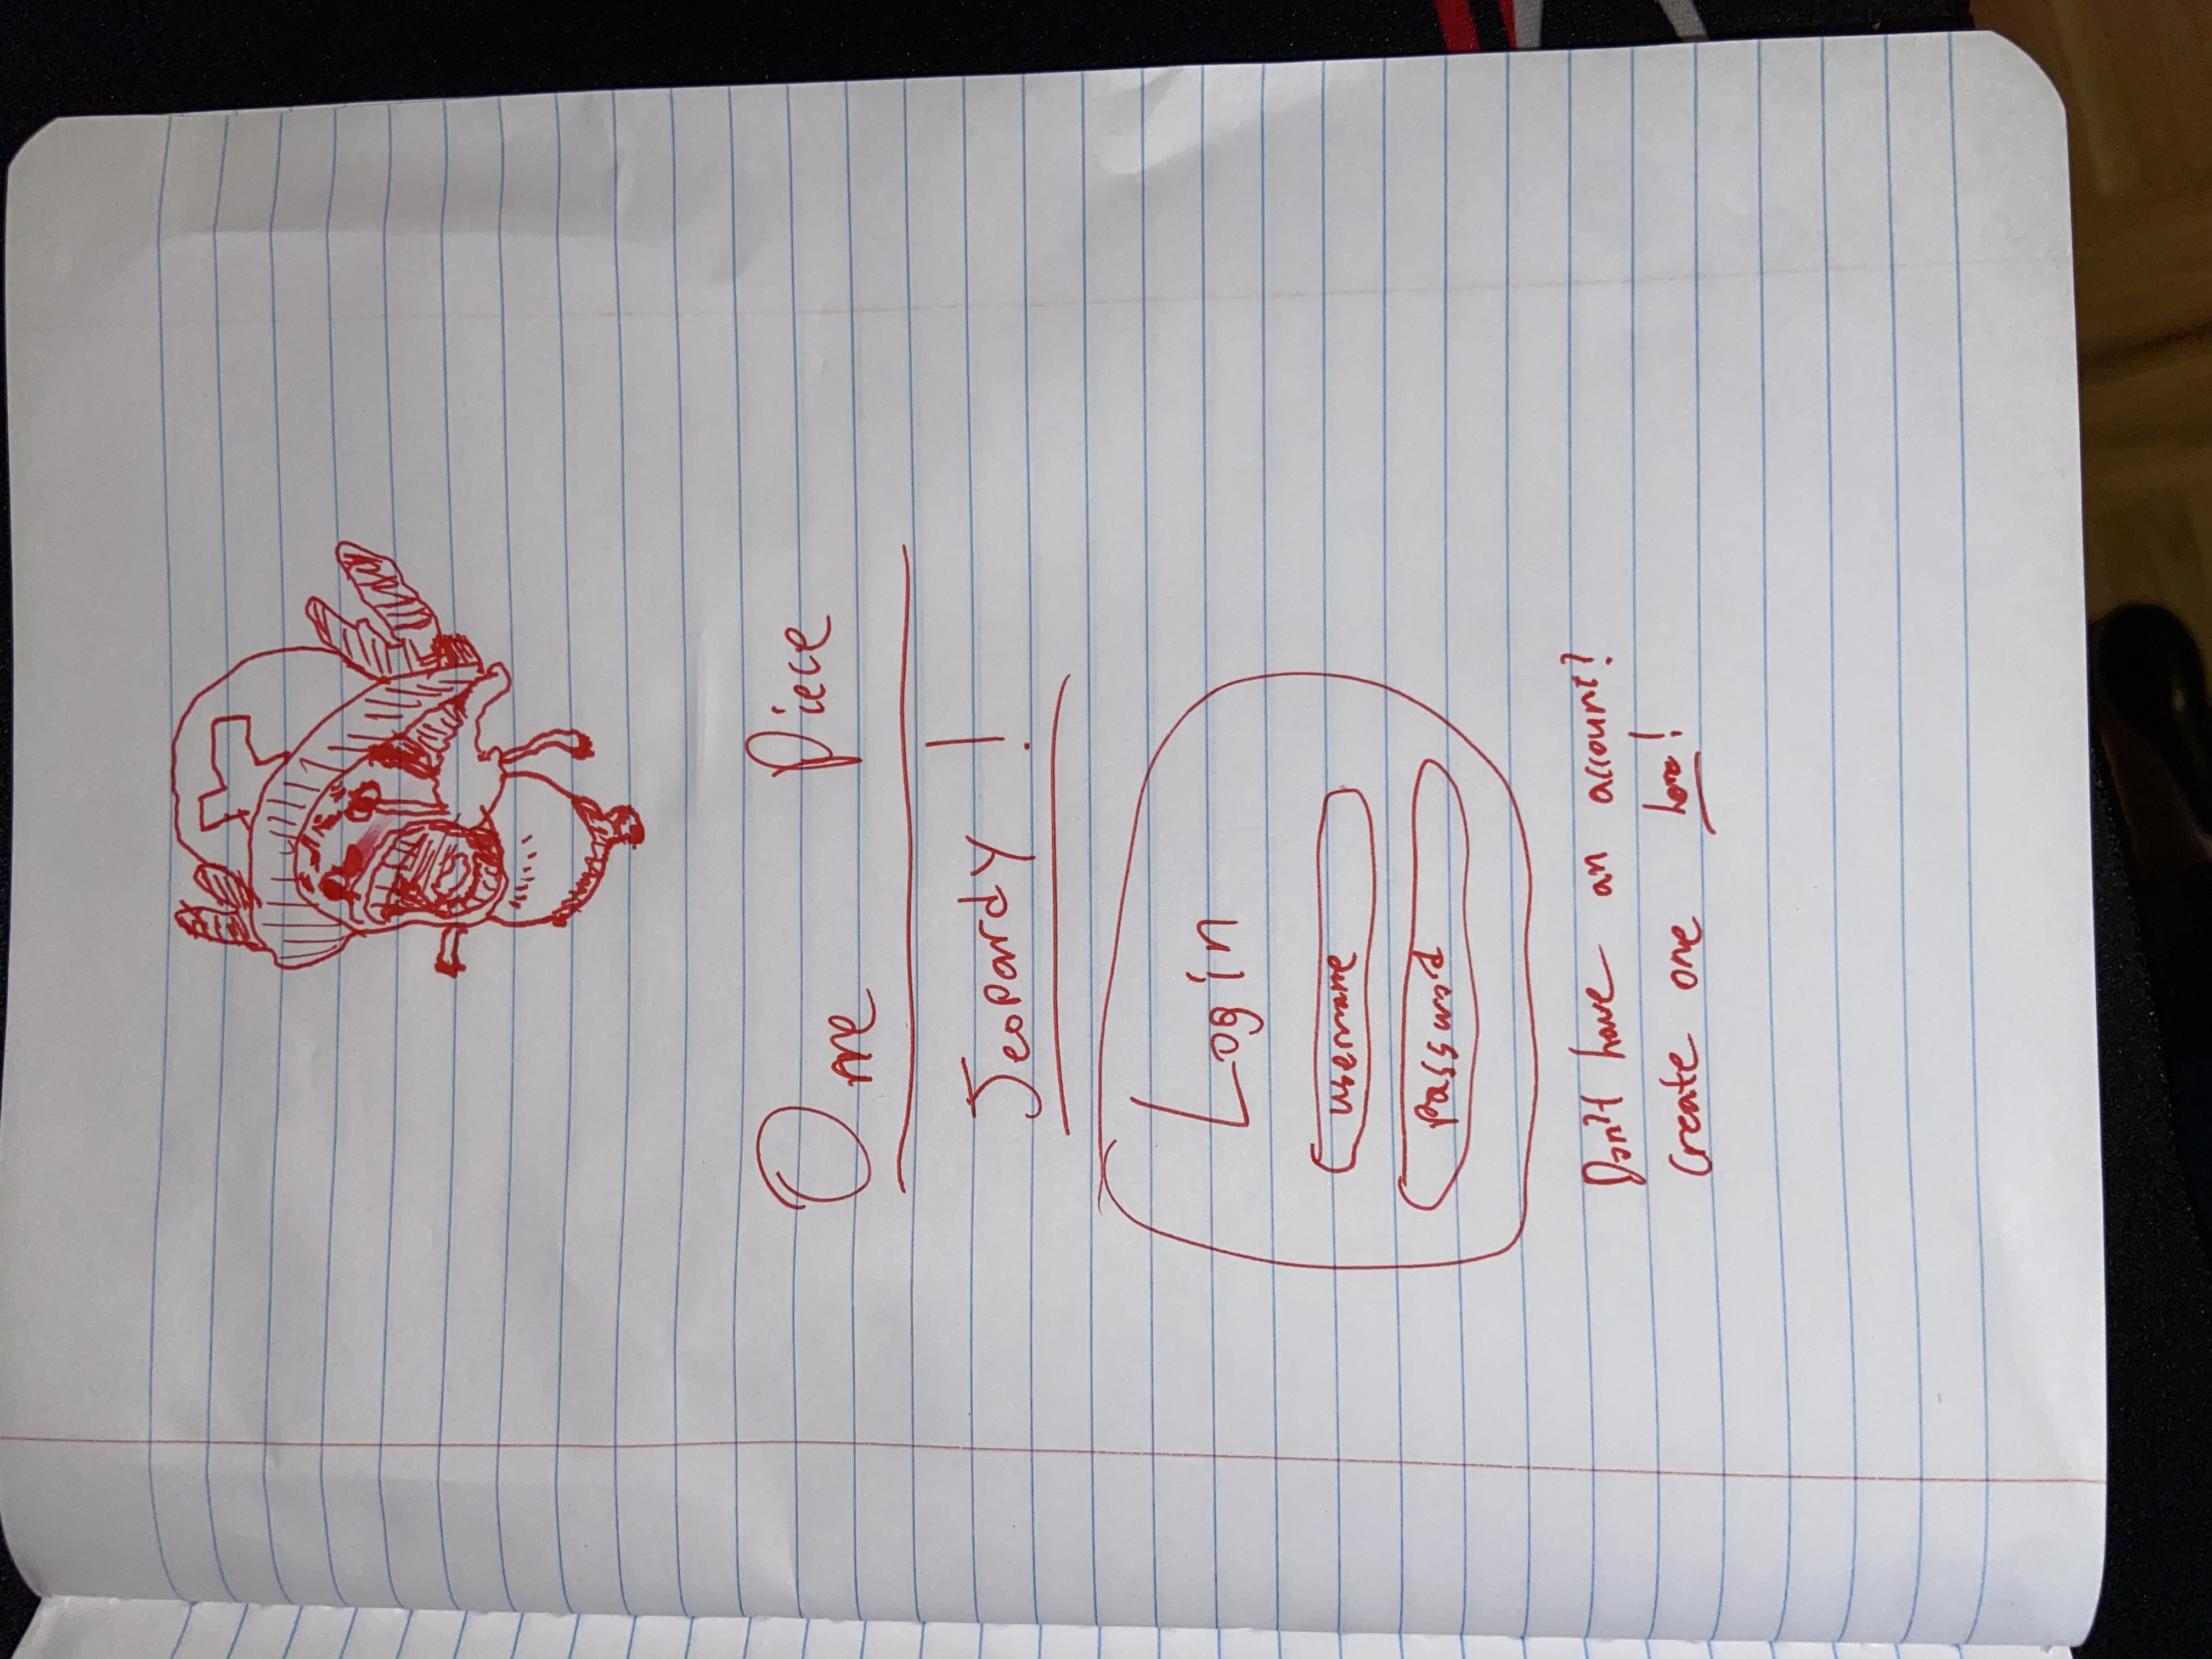 One Piece
Jeopardy!
Login
username
password
Don't have an account?
Create one here!